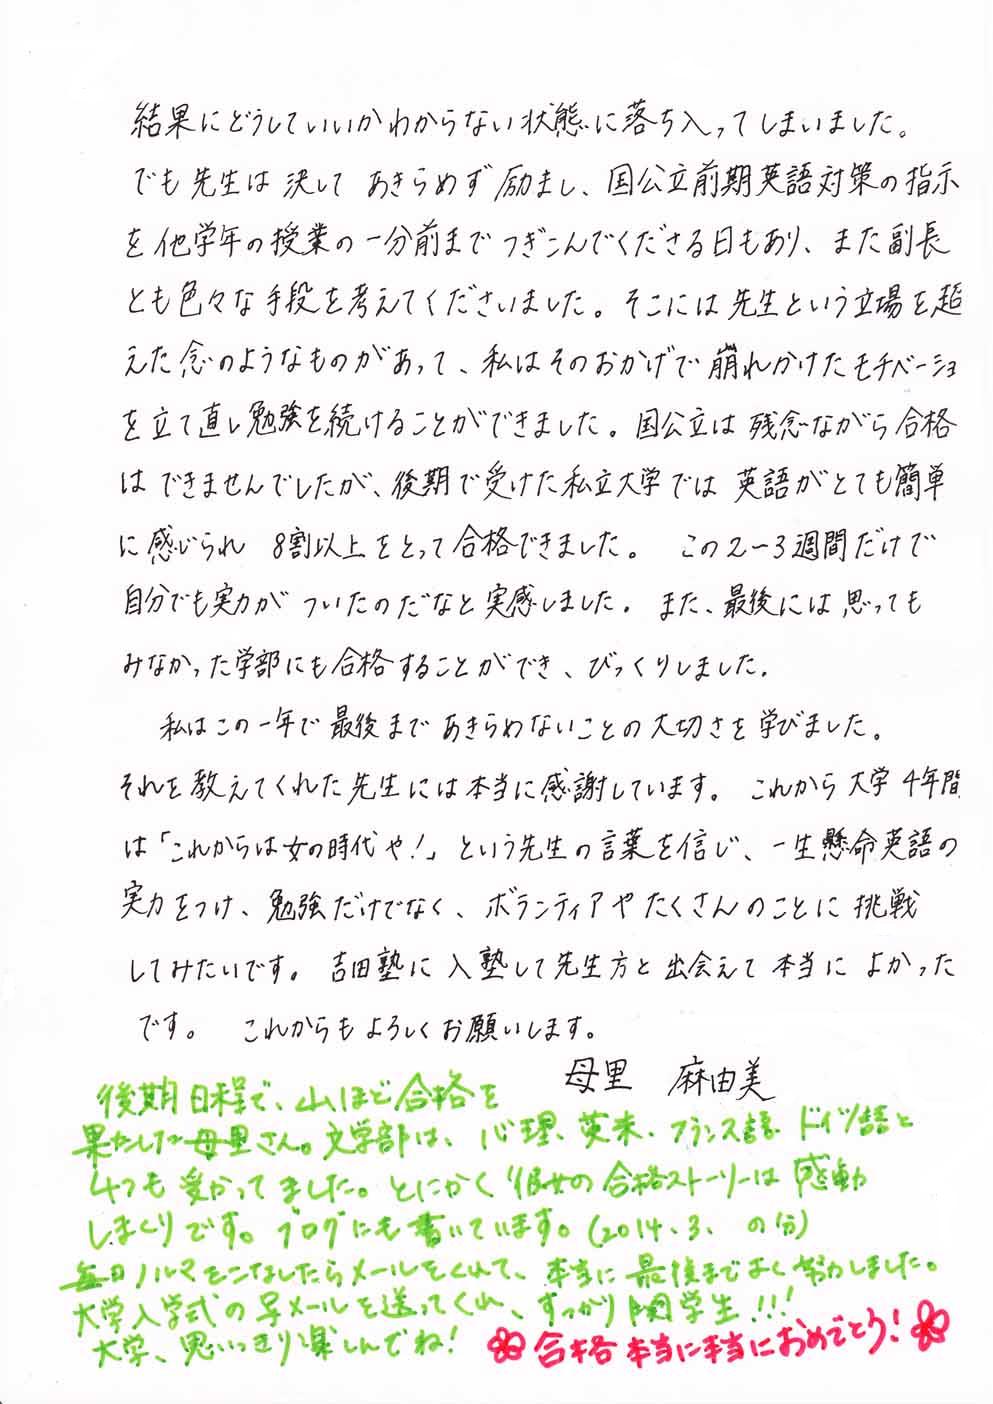 結果にどうしていいかわからない状態に落ち入ってしまいました。
でも先生は決してあきらめず励まし、国公立前期英語対策の指示
を他学年の授業の一分前までつぎこんでくださる日もあり、また副長
とも色々な手段を考えてくださいました。そこには先生という立場を超
えた念のようなものがあって、私はそのおかげで崩れかけたモチベーショ
を立て直し勉強を続けることができました。国公立は残念ながら合格
はできませんでしたが、後期で受けた私立大学では英語がとても簡単
に感じられ 8割以上をとって合格できました。 この2〜3週間だけで
自分でも実力がついたのだなと実感しました。また、最後には思っても
みなかった学部にも合格することができ、びっくりしました。
私はこの一年で最後まであきらめないことの大切さを学びました。
それを教えてくれた先生には本当に感謝しています。これから大学4年間
は「これからは女の時代や!」という先生の言葉を信じ、一生懸命英語の
実力をつけ、勉強だけでなく、ボランティアやたくさんのことに挑戦
してみたいです。吉田塾に入塾して先生方と出会えて本当によかった
です。 これからもよろしくお願いします。
母里 麻由美
後期日程で、山ほど合格を
果たした母里さん。文学部は、心理、英米、フランス語、ドイツ語と
4つも受かってました。とにかく彼女の合格ストーリーは感動
しまくりです。ブログにも書いています。(2014.3. の分)
毎日ノルマをこなしたらメールをくれて、本当に最後までよく努力しました。
大学入学式の写メールを送ってくれ、すっかり関学生!!!
大学、思いっきり楽しんでね!
合格本当に本当におめでとう!